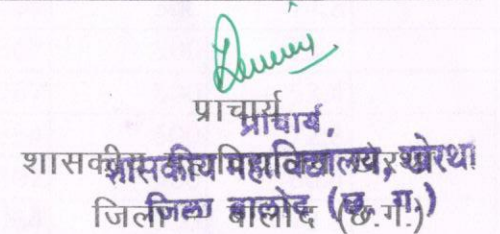 प्राचार्य
प्राचार्य,
शासकीय
शासकीय महाविद्यालय, खेरथा
जिला बालोद (छ.ग.)
जिला बालोद (छ. ग.)